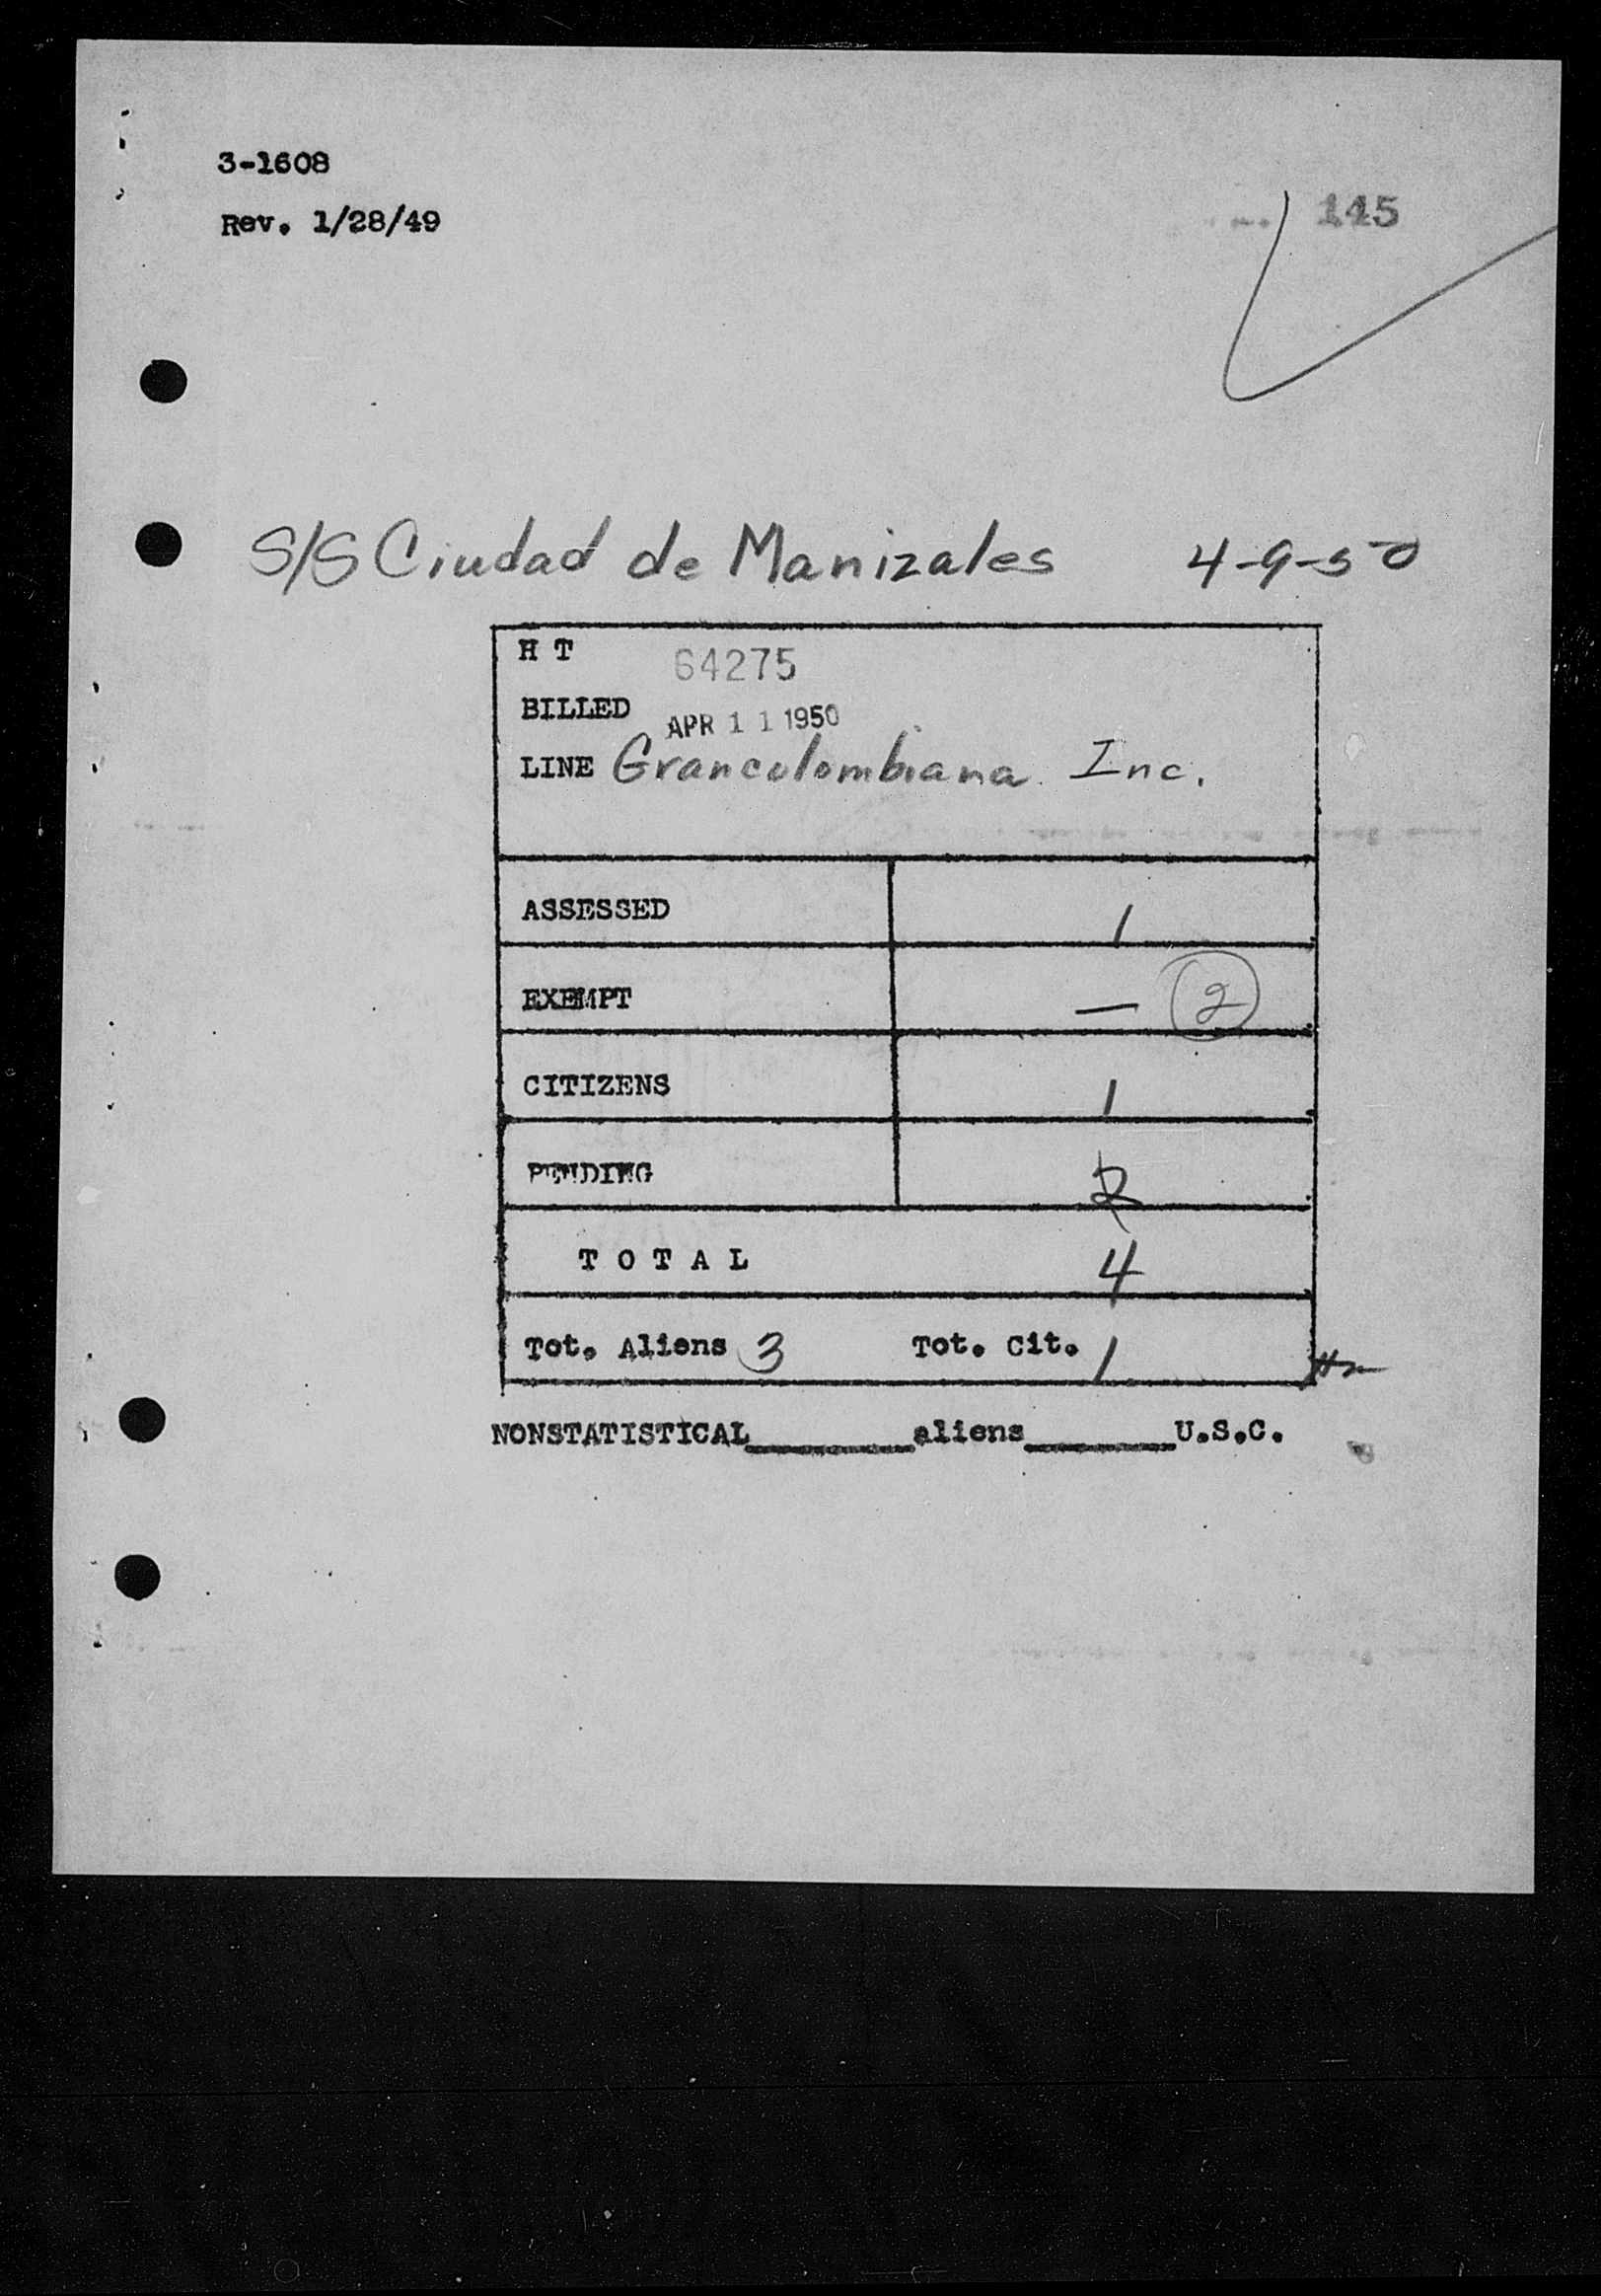 3-1608
Rev. 1/28/49
145
S/S Ciudad de Manizales 4-9-50
H T 64275
BILLED APR 11 1950
LINE Grancolombiana Inc.
ASSESSED 1
EXEMPT — 2
CITIZENS 1
PENDING 2
T O T A L 4
Tot. Aliens 3 Tot. Cit. 1
NONSTATISTICAL________aliens________U.S.C.